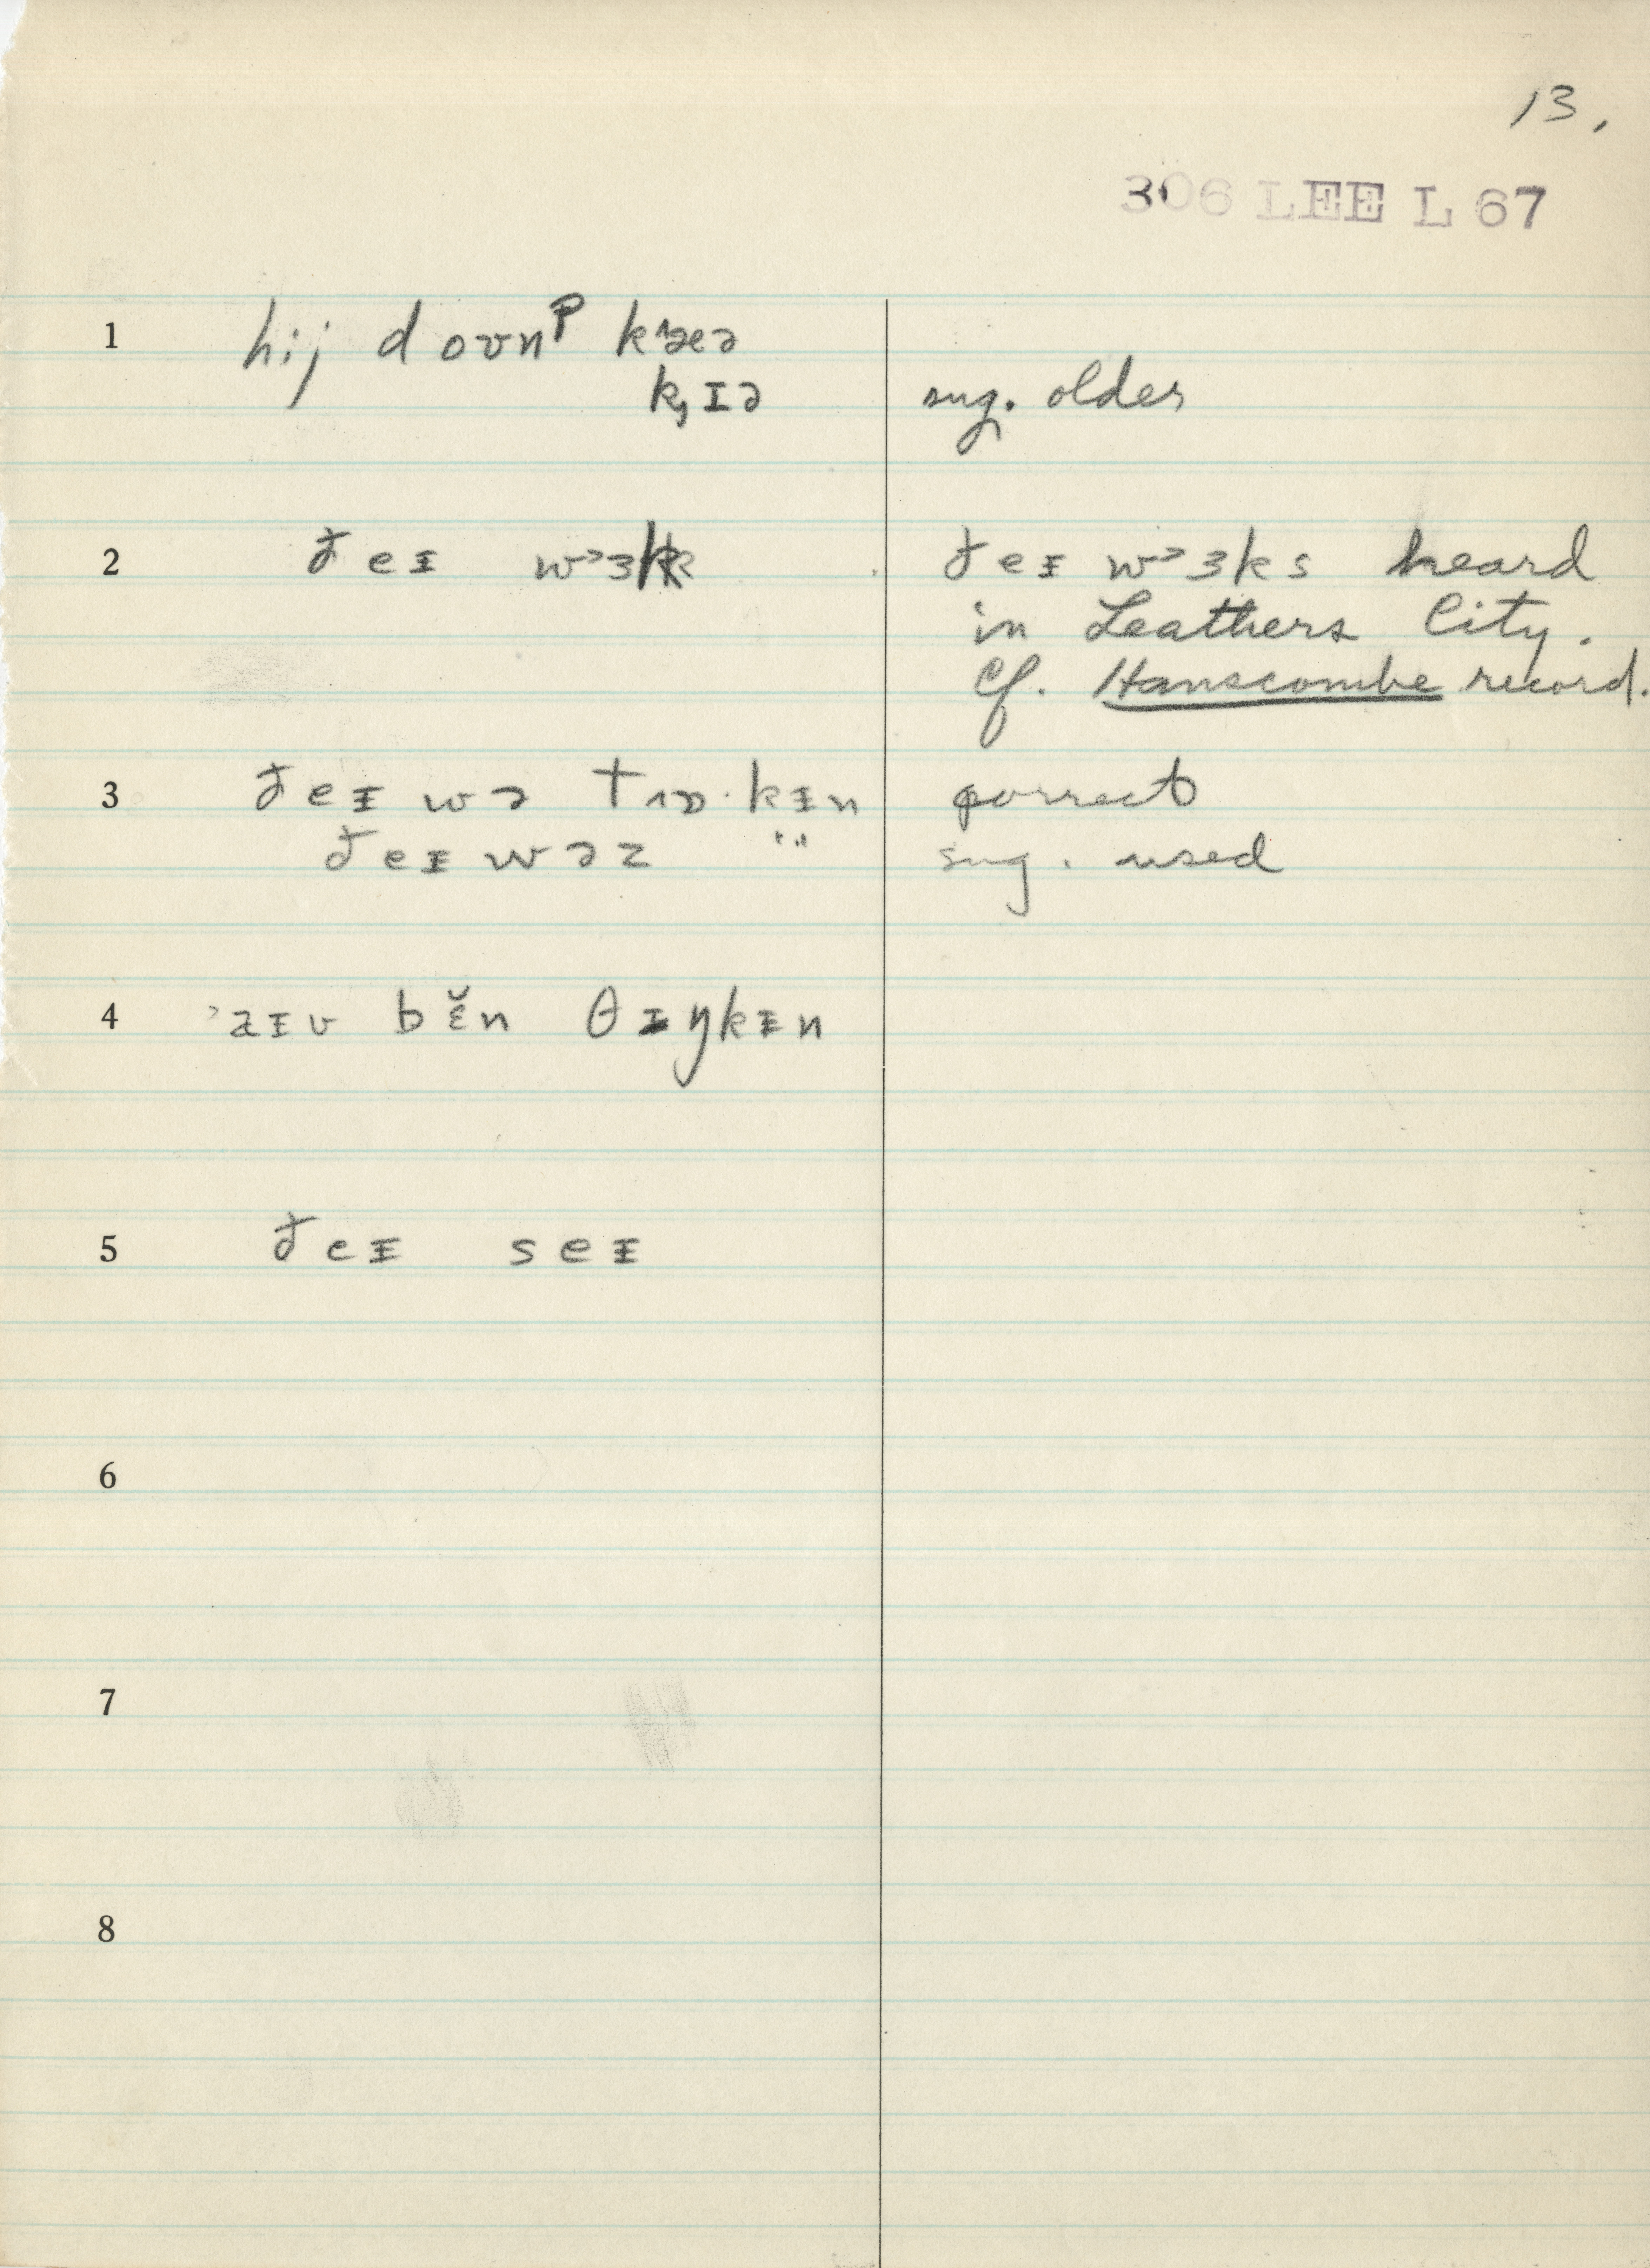 13.
306 LEE L 67
1 hij doʊnᵖ kæə
kɪə sug. older
2 ðeᵻ wɜk ðeᵻ wɜks heard
in Leathers City.
Cf. Hanscombe record.
3 ðeᵻ wə tɒkᵻn correct
ðeᵻ wəz " sug. used
4 aᵻv bɛ̆n θᵻŋkᵻn
5 ðeᵻ seᵻ
6
7
8